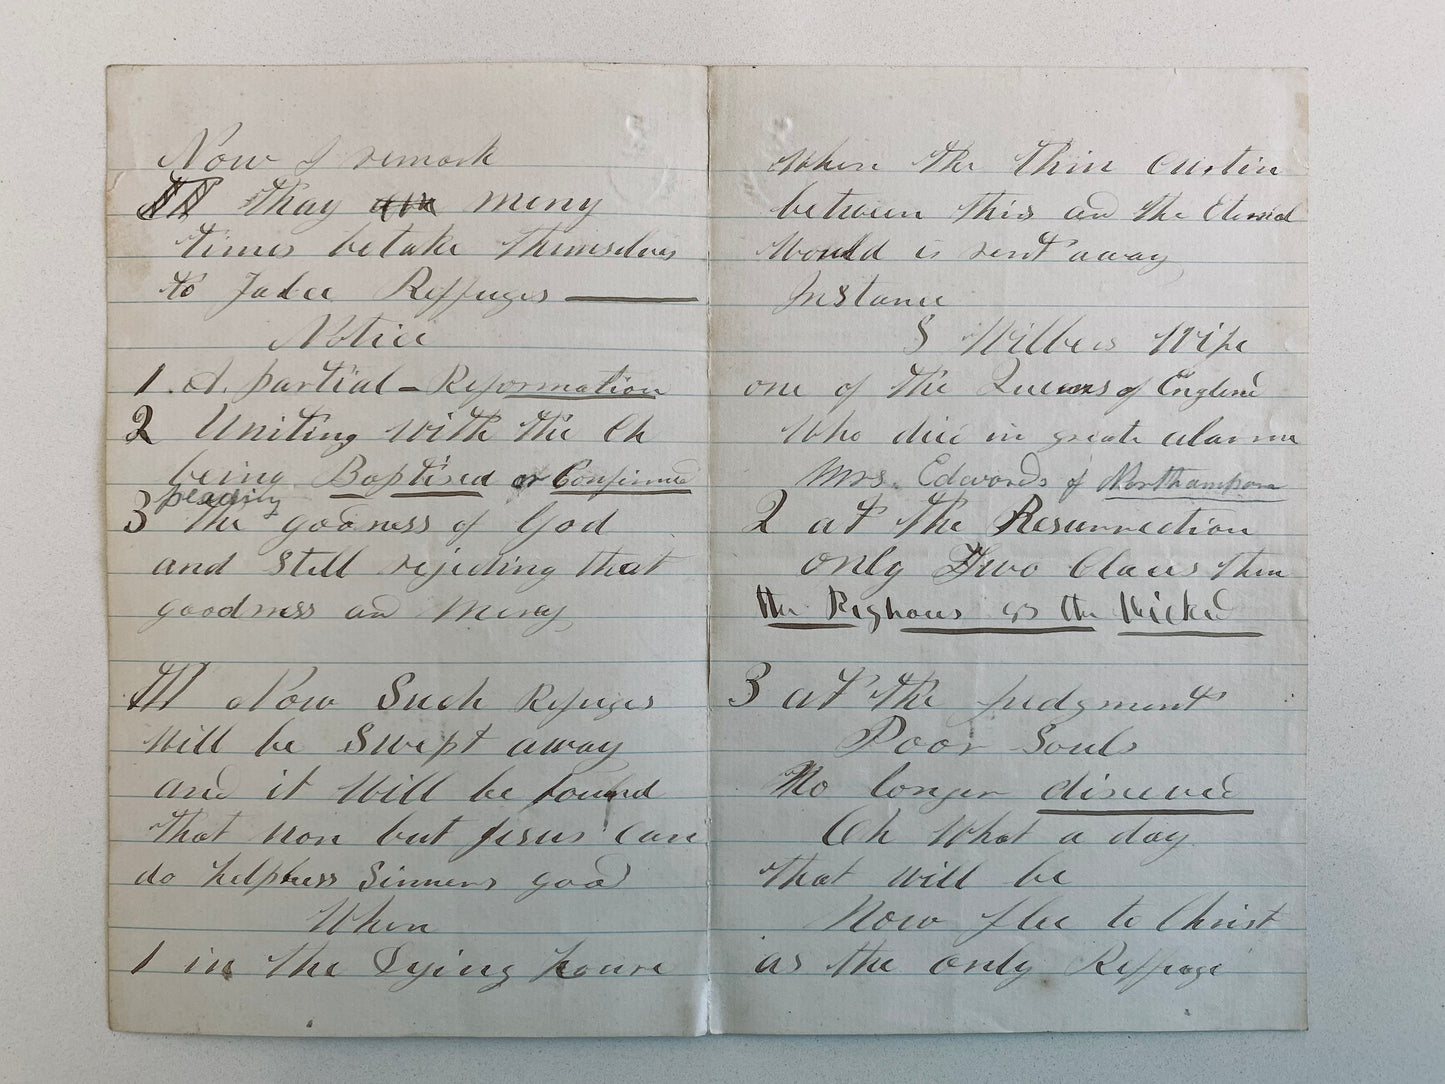 Now I remark
II Thay meny
times betake themselves
to Falce Reffuges
Notice
1. A. partial - Reformation
2 Uniting with the Ch
being Baptised or Confirmed
pleading
3 The goodness of God
and Still rejecting that
goodness and Mercy
III Now Such Refuges
Will be Swept away
and it Will be found
that non but Jesus Can
do helpless Sinners good
When
1 in the Dying houre
When the thin Curtin
between this and the Eternal
Would is rent away
Instance
S Wilbers Wife
one of the Queens of England
Who died in greate alarme
Mrs. Edwards of Northampon
2 at the Resurrection
only Two Clases then
the Righous or the Wicked
3 at the judgment
Poor Souls
No longer diseved
Oh What a day
that will be
Now flee to Christ
as the only Reffuge